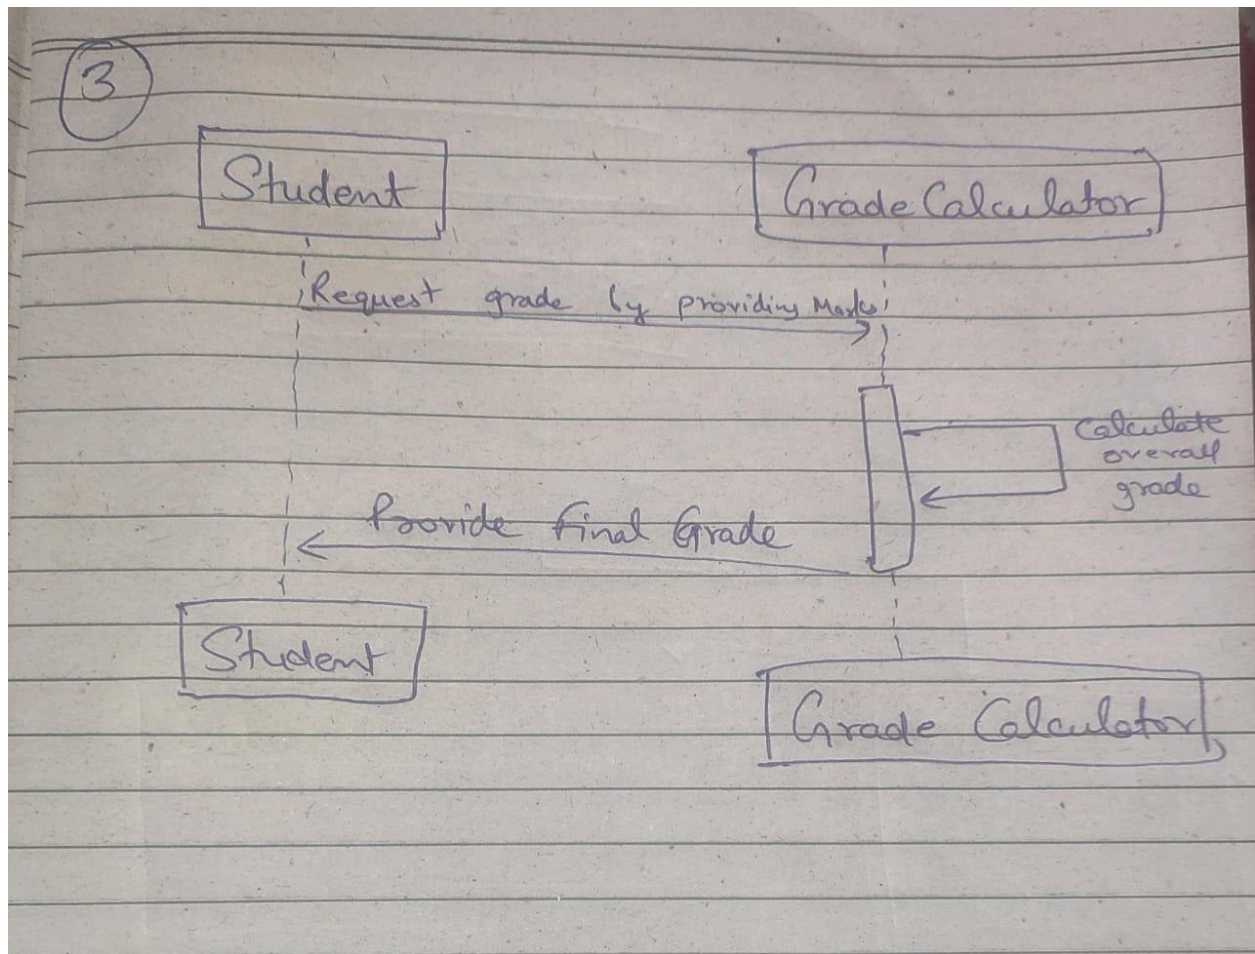 3
Student
Grade Calculator
Request grade by providing Marks
Calculate
overall
grade
Provide Final Grade
Student
Grade Calculator